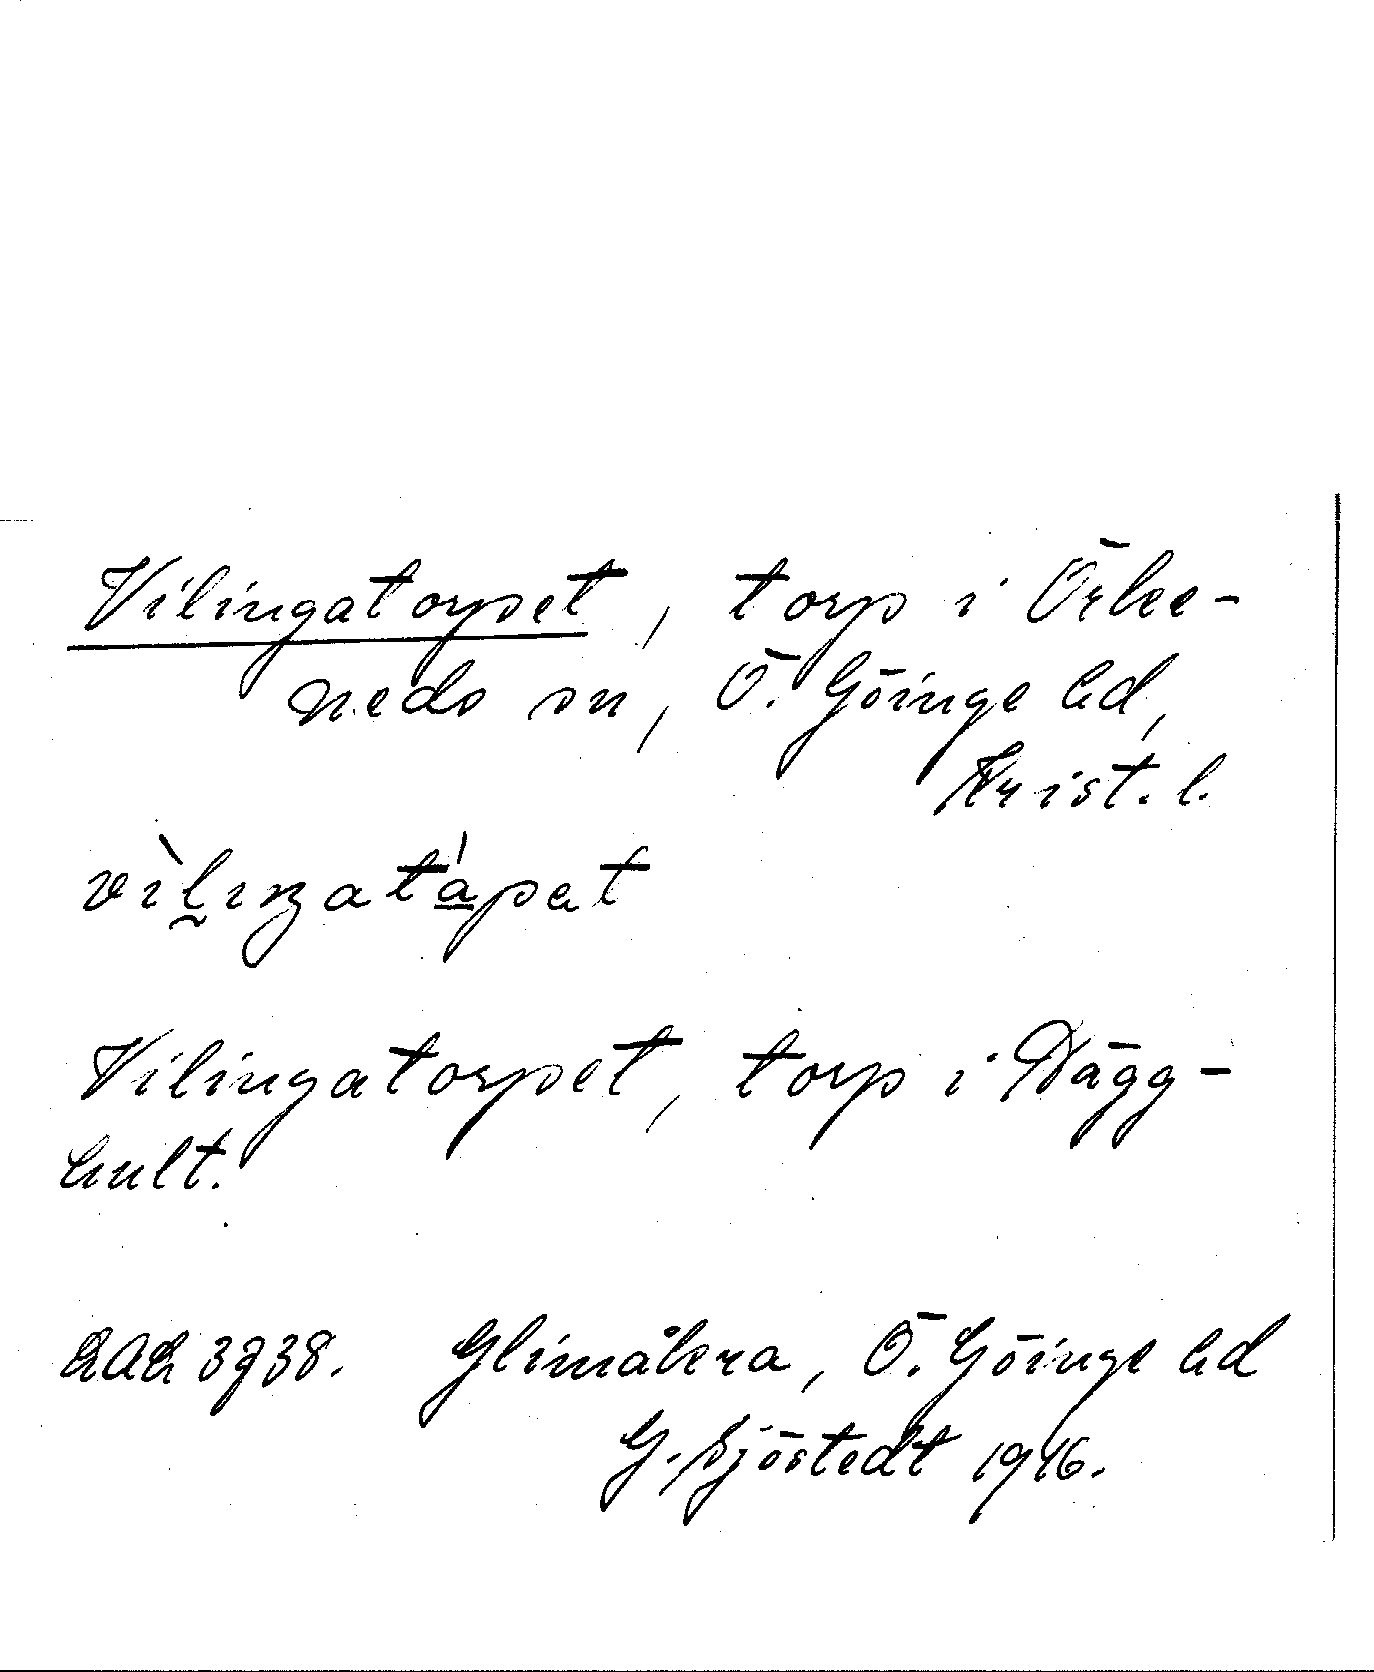 Vilingatorpet, torp i Örke-
neds sn, Ö. Göinge hd,
Krist. l.
Vilingatorpet, torp i Dägg-
hult.
LAL 3938. Glimåkra, Ö. Göinge hd
G. Sjöstedt 1946.